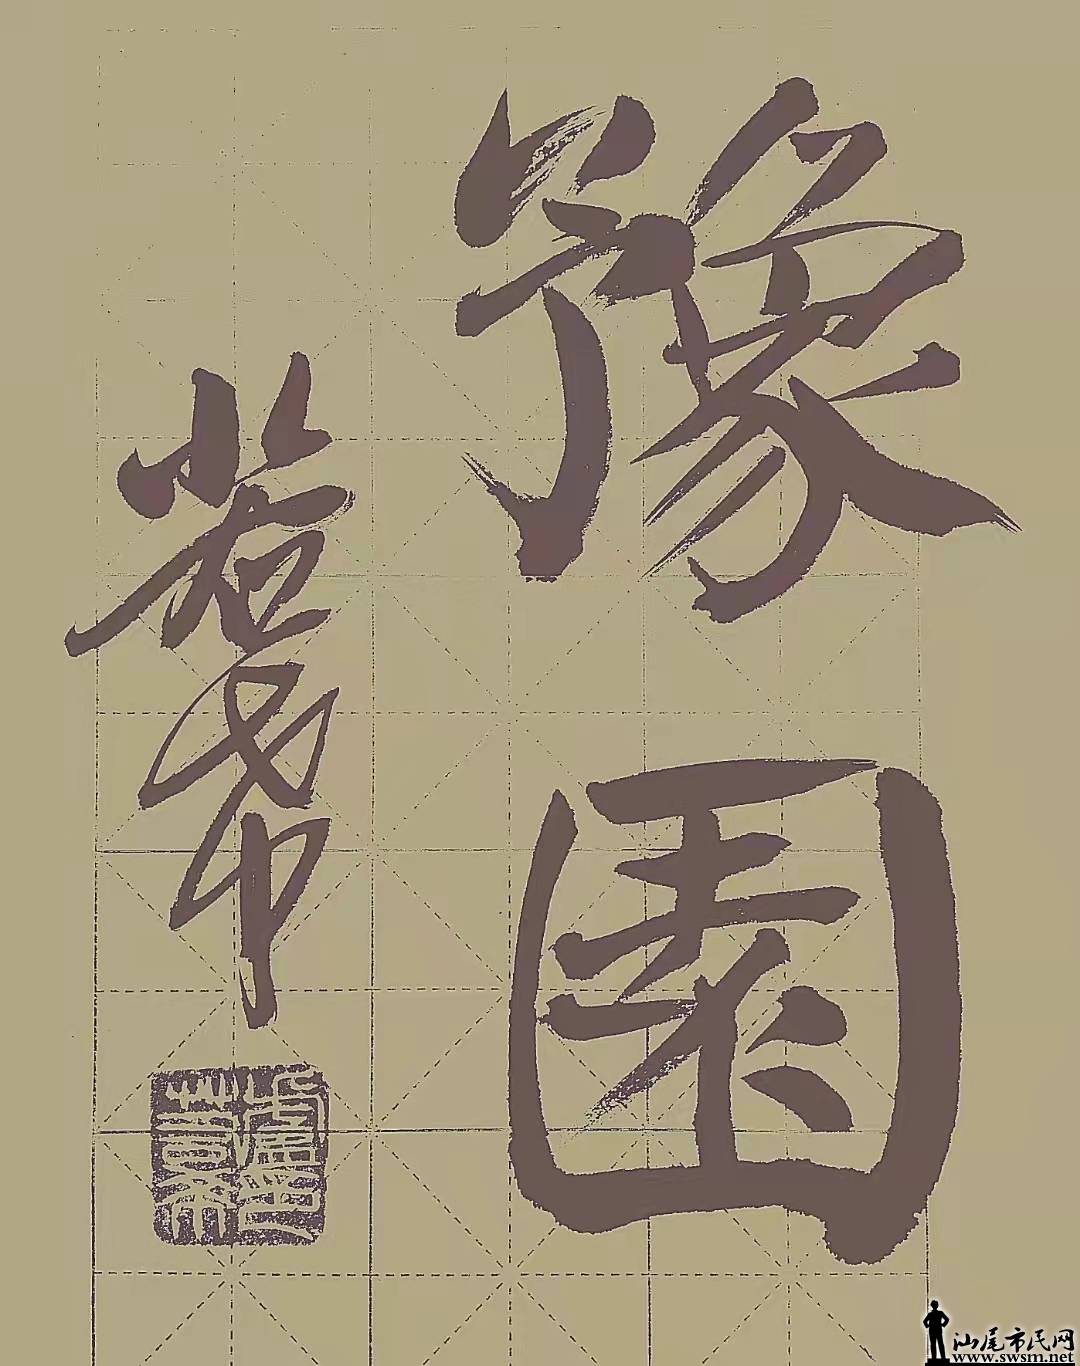 豫園
若希
汕尾市民网
www.swsm.net